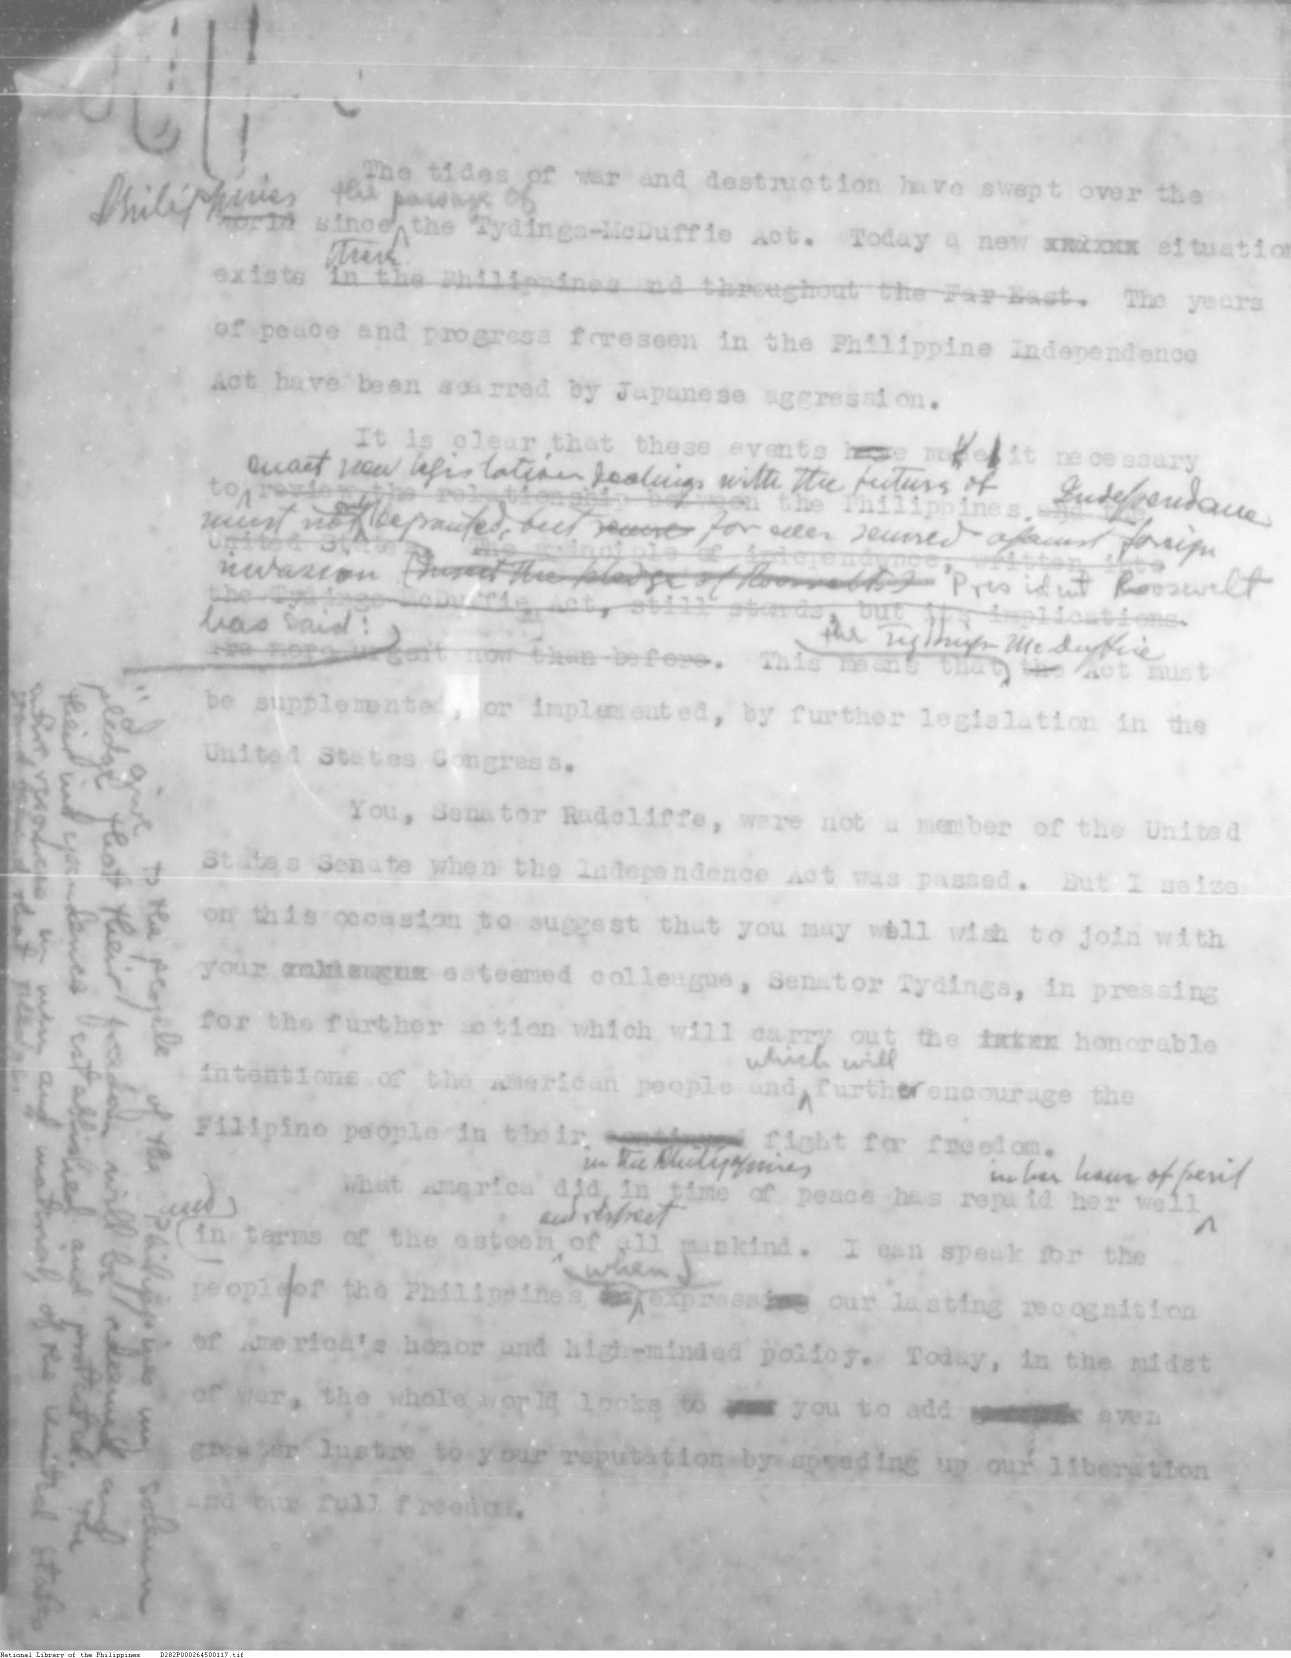 The tides of war and destruction have swept over the
Philippines the passage of
world since the Tydings-McDuffie Act. Today a new xxxxxx situation
there
exists in the Philippines and throughout the Far East. The years
of peace and progress foreseen in the Philippine Independence
Act have been scarred by Japanese aggression.
It is clear that these events have made it necessary
enact new legislation dealing with the future of Independence
to review the relationship between the Philippines and the
must not only be granted, but secure for ever secured against foreign
United States. The principle of independence, written into
invasion (Insert the pledge of Roosevelt) President Roosevelt
the Tydings-McDuffie Act, still stands, but its implications
has said:
the Tydings McDuffie
are more urgent now than before. This means that the Act must
be supplemented, or implemented, by further legislation in the
United States Congress.
You, Senator Radcliffe, were not a member of the United
States Senate when the Independence Act was passed. But I seize
on this occasion to suggest that you may well wish to join with
your esteemed colleague, Senator Tydings, in pressing
for the further action which will carry out the honorable
which will
intentions of the American people and further encourage the
Filipino people in their continued fight for freedom.
in the Philippines in her hour of peril
What America did in time of peace has repaid her well
and
and respect
in terms of the esteem of all mankind. I can speak for the
when I
people of the Philippines in expressing our lasting recognition
of America's honor and high-minded policy. Today, in the midst
of war, the whole world looks to you to add even
greater lustre to your reputation by speeding up our liberation
and our full freedom.
"I give to the people of the Philippines my solemn
pledge that their freedom will be redeemed and
their independence established and protected. The
entire resources in men and material, of the United States
stand behind that pledge."
National Library of the Philippines D282P000264500117.tif